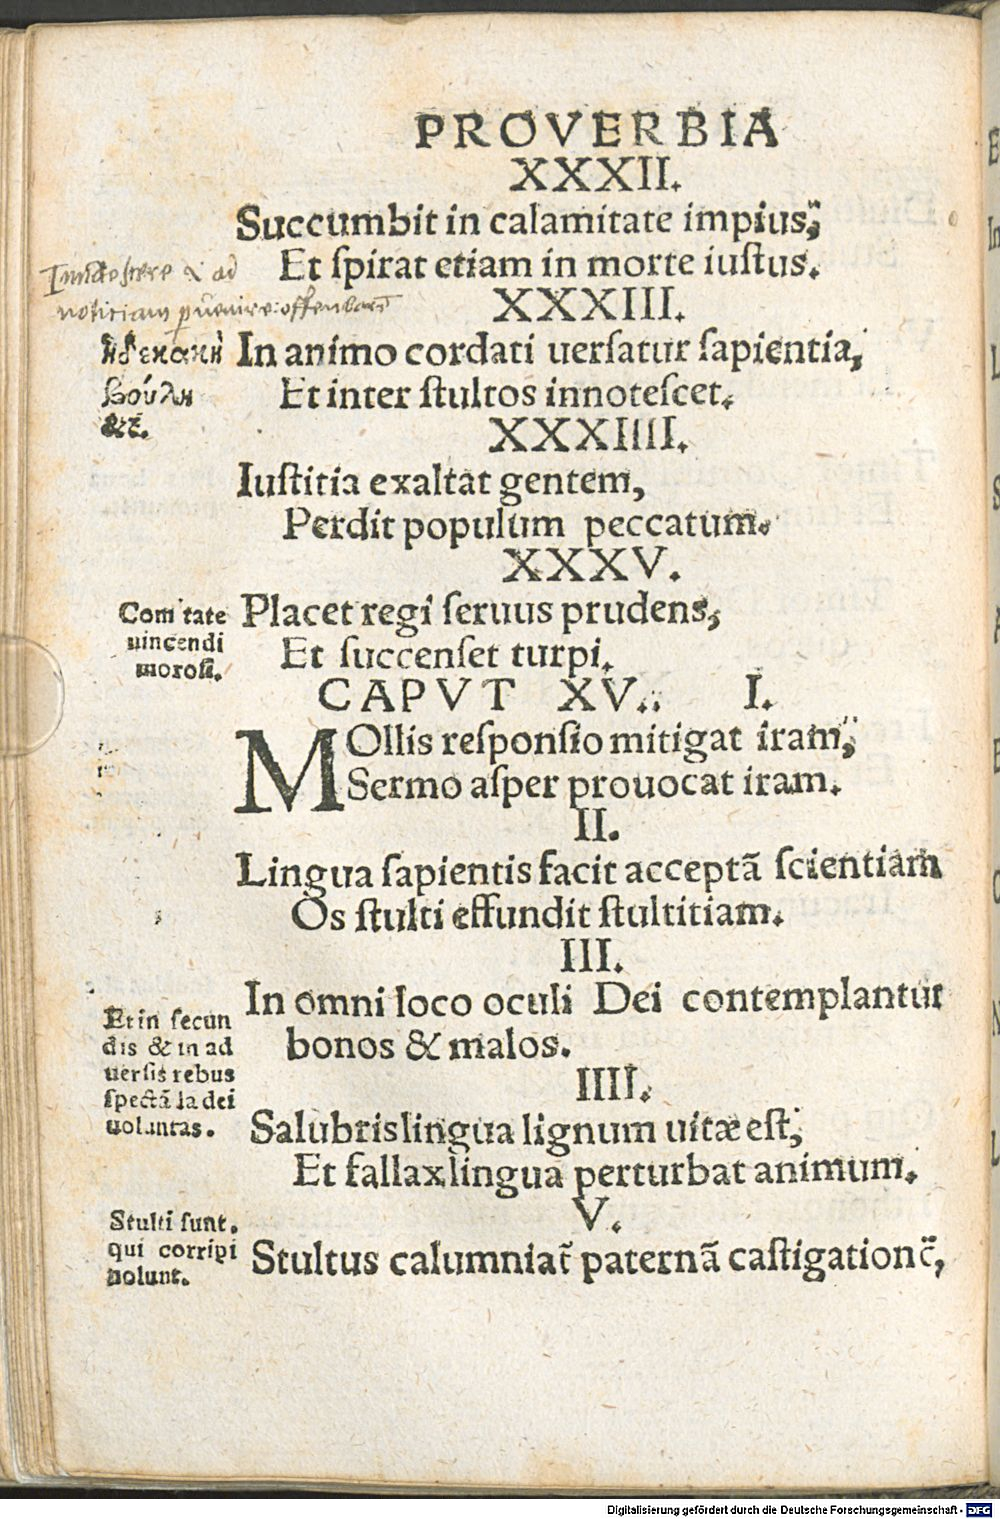 PROVERBIA
XXXII.
Succumbit in calamitate impius,
Et ſpirat etiam in morte iuſtus.
Innotescere & ad
noticiam pervenire: offenbart
XXXIII.
In animo cordati uerſatur ſapientia,
Et inter ſtultos innoteſcet.
ἡ δε κακὴ
βουλη
&c.
XXXIIII.
Iuſtitia exaltat gentem,
Perdit populum peccatum.
XXXV.
Placet regi ſeruus prudens,
Et ſuccenſet turpi.
Com tate
uincendi
moroſi.
CAPVT XV. I.
MOllis reſponſio mitigat iram,
Sermo aſper prouocat iram.
II.
Lingua ſapientis facit acceptā ſcientiam
Os ſtulti effundit ſtultitiam.
III.
In omni loco oculi Dei contemplantur
bonos & malos.
Et in ſecun
dis & in ad
uerſis rebus
ſpectāda dei
uoluntas.
IIII.
Salubris lingua lignum uitæ eſt,
Et fallax lingua perturbat animum.
V.
Stultus calumniat᷑ paternā caſtigationē,
Stulti ſunt.
qui corripi
nolunt.
Digitalisierung gefördert durch die Deutsche Forschungsgemeinschaft - DFG